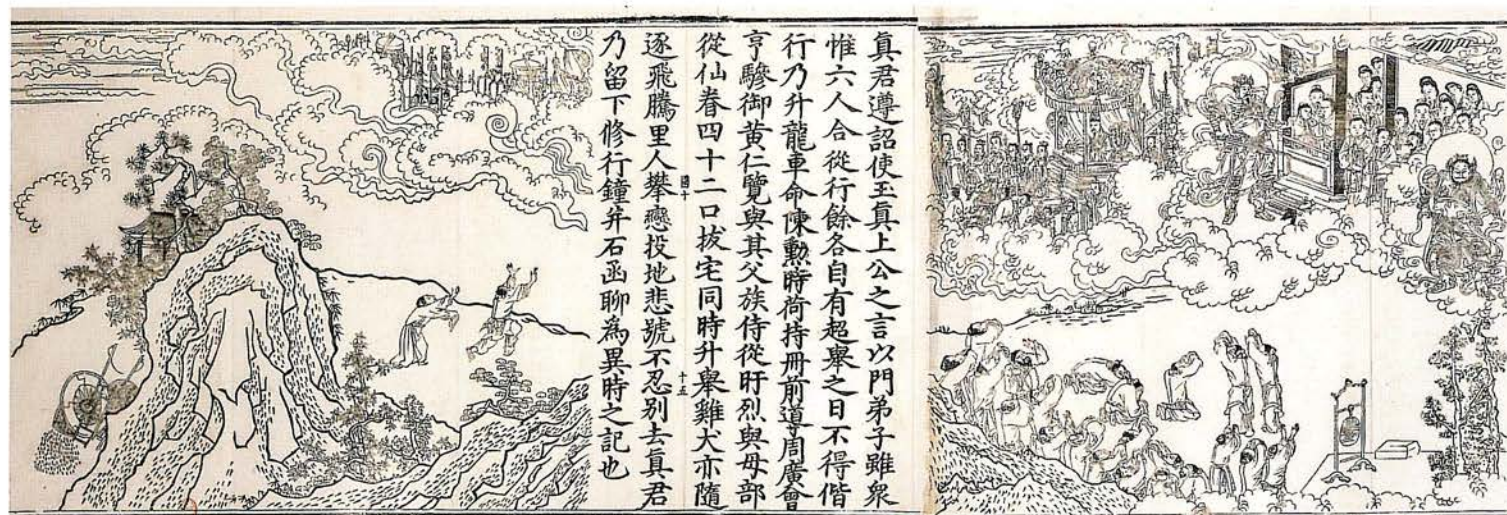 真君遵詔使玉真上公之言以門弟子雖衆
惟六人合從行餘各自有超舉之日不得偕
行乃升龍車命陳勲時荷持冊前導周廣曾
亨驂御黃仁覽與其父族侍從盱烈與母部
從仙眷四十二口拔宅同時升舉雞犬亦隨
十五
逐飛騰里人攀戀投地悲號不忍別去真君
乃留下修行鐘并石函聊為異時之記也